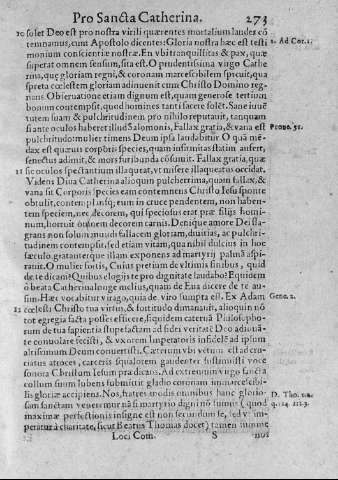 Pro Sancta Catherina. 273
20 solet Deo est pro nostra virili quærentes mortalium laudes cō
temnamus, cum Apostolo dicentes: Gloria nostra hæc est testi 2. Ad Cor. 1.
monium conscientiæ nostræ. En vbi tranquillitas & pax, quæ
superat omnem sensum, sita est. O prudentissima virgo Cathe
rina, quę gloriam regni, & coronam marcescibilem spicuit, qua
spreta cœlestem gloriam adinuenit cum Christo Domino reg-
nans. Obseruatione etiam dignum est, quam generose tertium
bonum contempsit, quod homines tanti facere solēt. Sane iuuē
tutem suam & pulchritudinem pro nihilo reputauit, tanquam
si ante oculos haberet illud Salomonis, Fallax gratia, & vana est Prouc. 31.
pulchritudo: mulier timens Deum ipsa laudabitur O quā mē-
dax est quæuis corporis species, quam infirmitas statim aufert,
senectus adimit, & mors furibunda cōsumit. Fallax gratia, quæ
21 sic spectantium illaqueat, vt misere illaqueatos occidat.
Videns Diua Catherina alioquin pulcherrima, quam fallax, &
vana sit Corporis species eam contemnens Christo Iesu sponte
obtulit, contemplansq; eum in cruce pendentem, non haben-
tem speciem, nec decorem, qui speciosus erat præ filijs homi-
num, horruit omnem decorem carnis. Denique amore Dei fla-
grans non solum mundi fallacem gloriam, diuitias, ac pulchri-
tudinem contempsit, sed etiam vitam, qua nihil dulcius in hoc
sæculo, gratanterque illam exponens ad martyrij palmā aspi-
rauit. O mulier fortis, Cuius pretium de vltimis finibus, quid
de te dicam? Quibus elogijs te pro dignitate laudabo? Equidem
ô beata Catherina longe melius, quam de Eua dicere de te au-
sim. Hæc vocabitur virago, quia de viro sumpta est. Ex Adam Gene. 2.
22 cœlesti Christo tua virtus, & fortitudo dimanauit, alioquin nō
tot egregia facta posses efficere, siquidem caterua Philosopho-
rum de tua sapientia stupefactam ad fidei veritatē Deo adiuuā-
te conuolare fecisti, & vxorem Imperatoris infidelē ad ipsum
altissimum Deum conuertisti. Cæterum vbi ventum est ad cru-
ciatus atroces, carceris squalorem gaudenter sustinuisti voce
sonora Christum Iesum prædicans. Ad extremum virgo sancta
collum suum lubens submittit gladio coronam immarcescibi-
lis gloriæ accipiens. Nos, fratres modis omnibus hanc glorio-
sam sanctam veneremur nā si martyrio digni nō sumus (quod D. Tho. 2.2.
maximæ perfectionis insigne est non secundum se, sed vt im- q. 124. ar. 3.
peratur à charitate, sicut Beatus Thomas docet) tamen summe
Loci Com. S nos